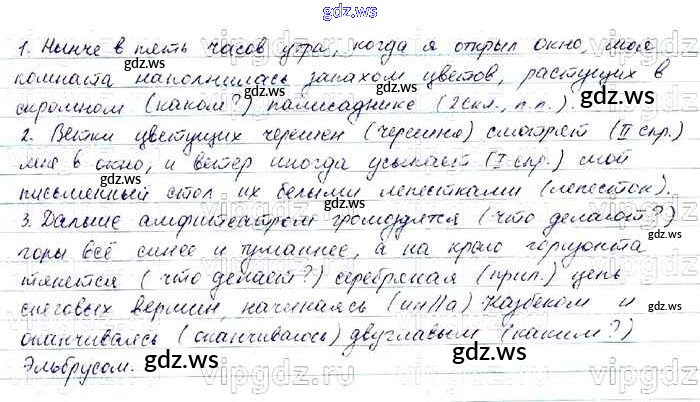 gdz.ws
1. Нынче в пять часов утра, когда я открыл окно, моя
комната наполнилась запахом цветов, растущих в
скромном (каком?) палисаднике (2скл., п.п.).
2. Ветки цветущих черешен (черешня) смотрят (II спр.)
мне в окно, и ветер иногда усыпает (I спр.) мой
письменный стол их белыми лепестками (лепесток).
3. Дальше амфитеатром громоздятся (что делают?)
горы всё синее и туманнее, а на краю горизонта
тянется (что делает?) серебряная (прил.) цепь
снеговых вершин, начинаясь Казбеком и
оканчиваясь двуглавым (каким?)
Эльбрусом.
gdz.ws
gdz.ws
gdz.ws
gdz.ws
gdz.ws
gdz.ws
gdz.ws
gdz.ws
vipgdz.ru